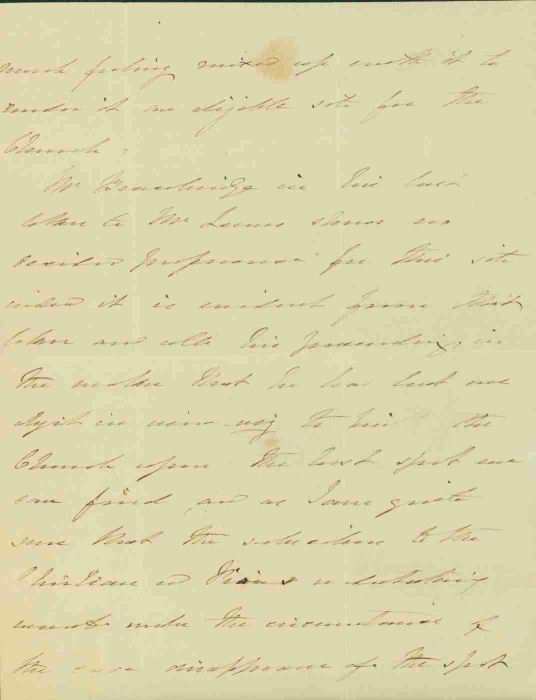 much feeling mixed up with it to
render it an eligible site for the
Church =
Mr Bracebridge in his last
letter to Mr shows no
decided preference for this site
indeed it is evident from that
letter and all his proceedings in
the matter that he has but one
object in view viz to build the
Church upon the best spot we
can find, and as I am quite
sure that the to the
Christian
would under the circumstances of
the case disapprove of the spot